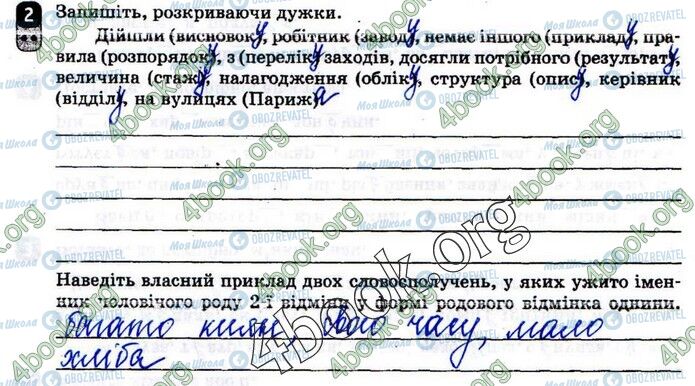 2 Запишіть, розкриваючи дужки.
Дійшли (висновок)у, робітник (завод)у, немає іншого (приклад)у, пра-
вила (розпорядок)у, з (перелік)у заходів, досягли потрібного (результат)у,
величина (стаж)у, налагодження (облік)у, структура (опис)у, керівник
(відділ)у, на вулицях (Париж)а
Наведіть власний приклад двох словосполучень, у яких ужито імен-
ник чоловічого роду 2-ї відміни у формі родового відмінка однини.
багато часу, мало
хліба
4book.org
Моя Школа
OBOZREVATEL